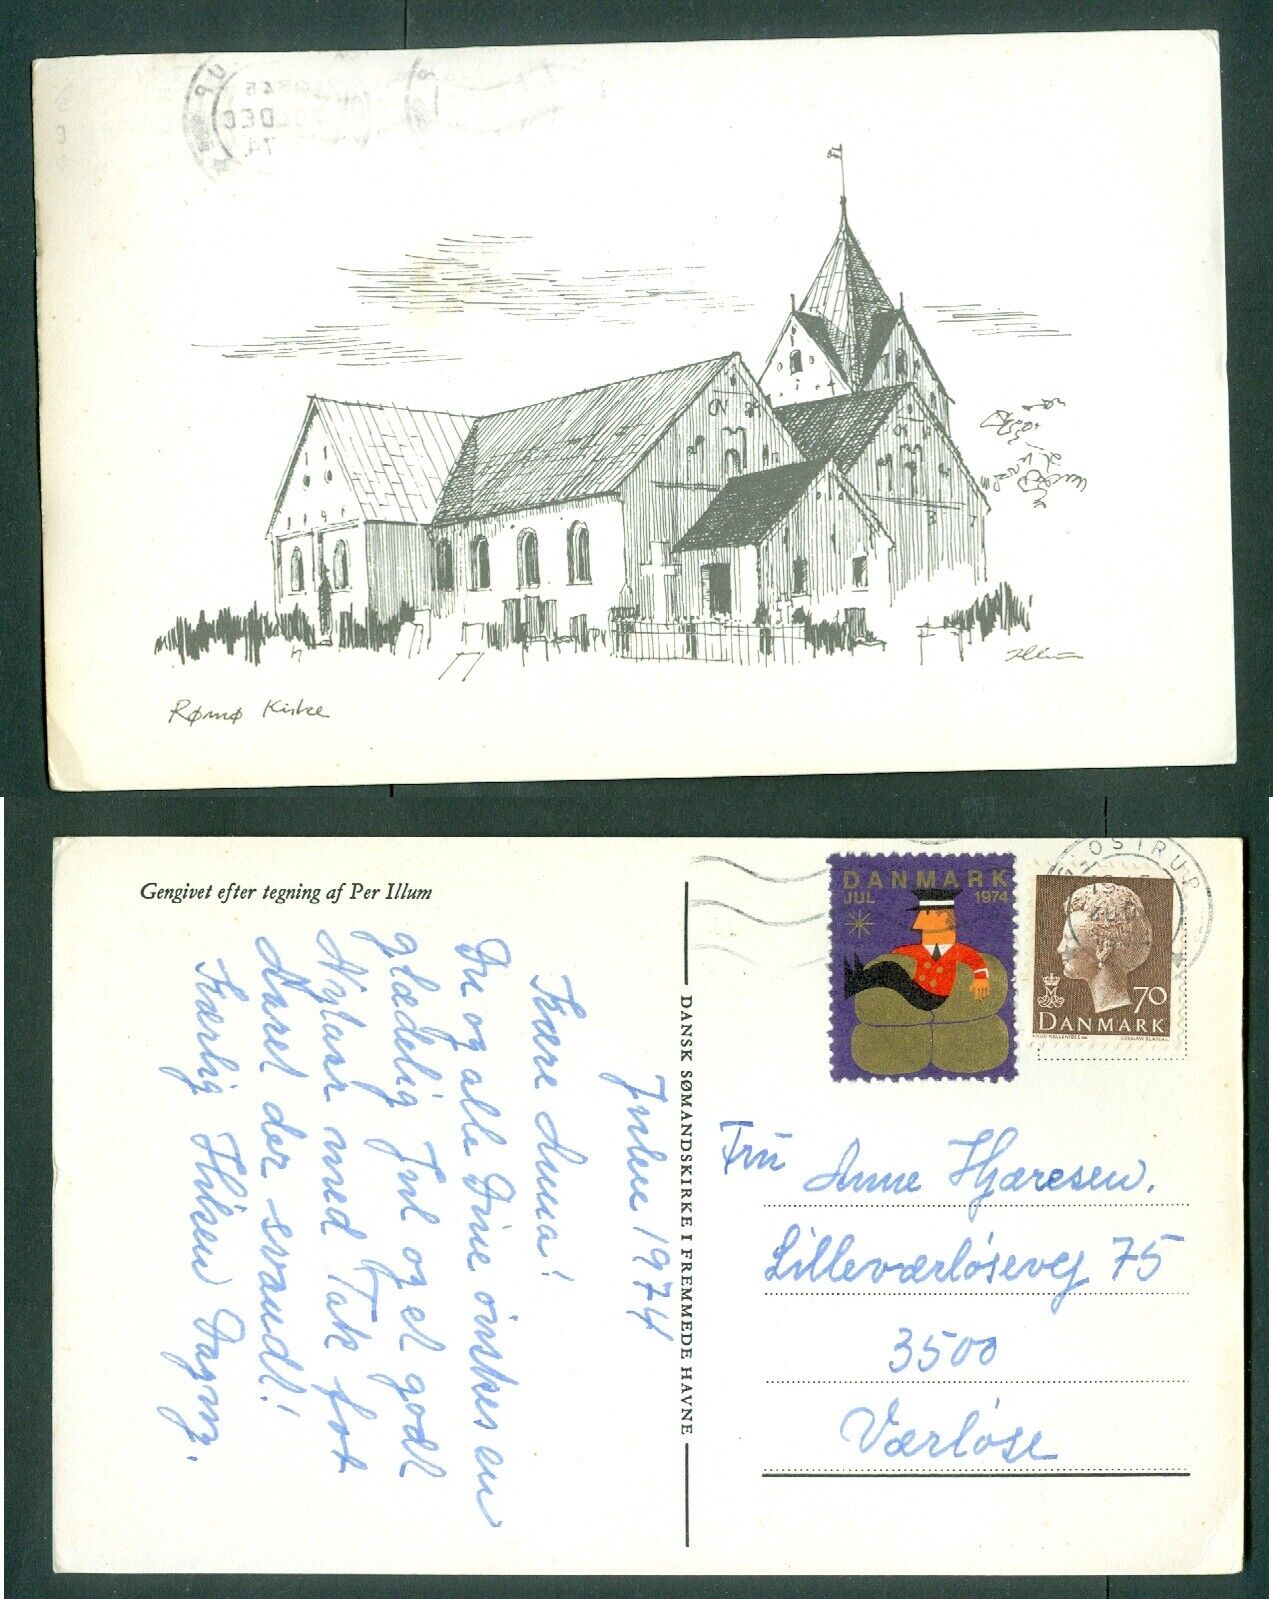 Rømø Kirke
Illum
Gengivet efter tegning af Per Illum
Julen 1974
Kære Anna!
Du og alle Dine ønskes en
glædelig Jul og et godt
Nytaar med Tak for
Aaret der svandt!
Kærlig Hilsen Dagny.
DANSK SØMANDSKIRKE I FREMMEDE HAVNE
DANMARK
JUL 1974
GLOSTRUP
70
DANMARK
CZESLAW SLANIA
Fru Anne Hjæresen.
Lilleværløsevej 75
3500
Værløse